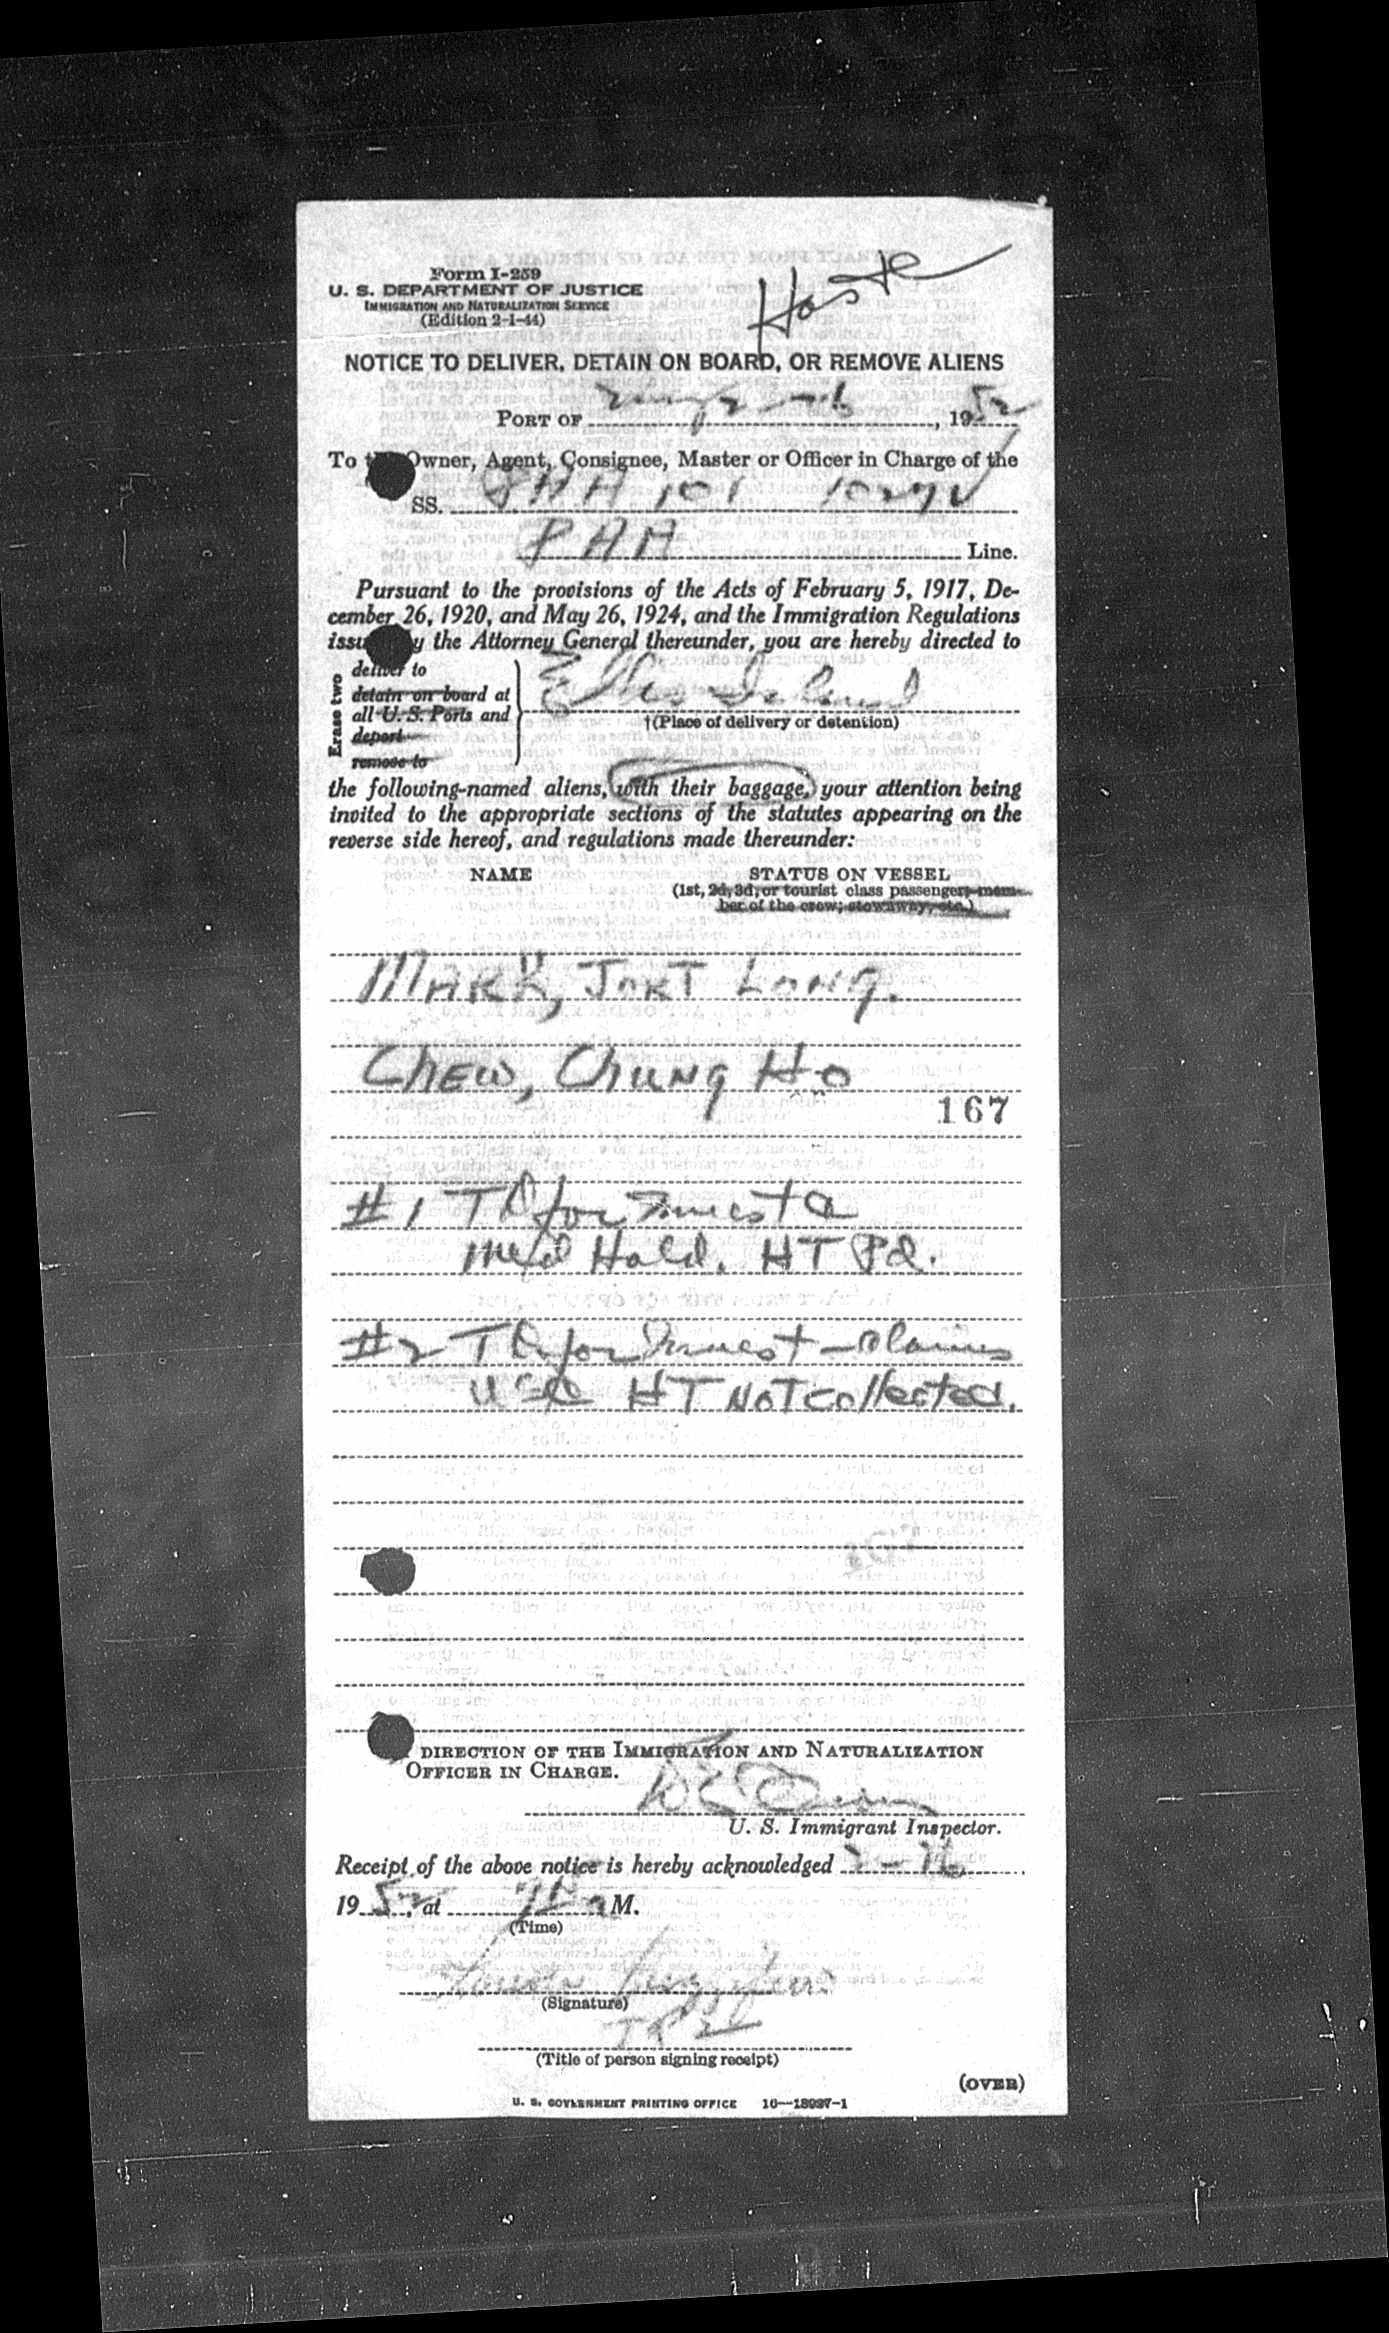 Form I-259
U. S. DEPARTMENT OF JUSTICE
IMMIGRATION AND NATURALIZATION SERVICE
(Edition 2-1-44)
NOTICE TO DELIVER, DETAIN ON BOARD, OR REMOVE ALIENS
PORT OF , 1952
To Owner, Agent, Consignee, Master or Officer in Charge of the
SS. PAA 101
PAA Line.
Pursuant to the provisions of the Acts of February 5, 1917, De-
cember 26, 1920, and May 26, 1924, and the Immigration Regulations
the Attorney General thereunder, you are hereby directed to
Erase two
deliver to
detain on board at
all U. S. Ports and
deport
remove to
Ellis Island
†(Place of delivery or detention)
the following-named aliens, with their baggage, your attention being
invited to the appropriate sections of the statutes appearing on the
reverse side hereof, and regulations made thereunder:
NAME STATUS ON VESSEL
(1st, 2d, 3d, or tourist class passenger; mem-
ber of the crew; stowaway, etc.)
MARK, JORT LONG.
CHEW, CHUNG HO
167
#1 TD for Invest &
Med Hold. HT Pd.
#2 TD for Invest - claims
USC HT NOT collected.
DIRECTION OF THE IMMIGRATION AND NATURALIZATION
OFFICER IN CHARGE.
U. S. Immigrant Inspector.
Receipt of the above notice is hereby acknowledged 2-16
1952, at M.
(Time)
(Signature)
(Title of person signing receipt)
(OVER)
U. S. GOVERNMENT PRINTING OFFICE 16—18927-1